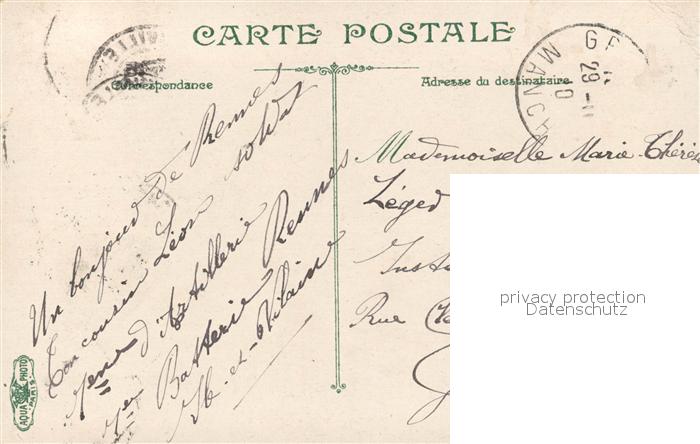 CARTE POSTALE
Correspondance
Adresse du destinataire
MANCHE
29 -11
Un bonjour de Rennes
Ton cousin Léon soldat
7eme d'Artillerie
1ere Batterie Rennes
Ille-et-Vilaine
Mademoiselle Marie-Thérè
Léged
Insti
Rue
privacy protection
Datenschutz
AQUA PHOTO
PARIS